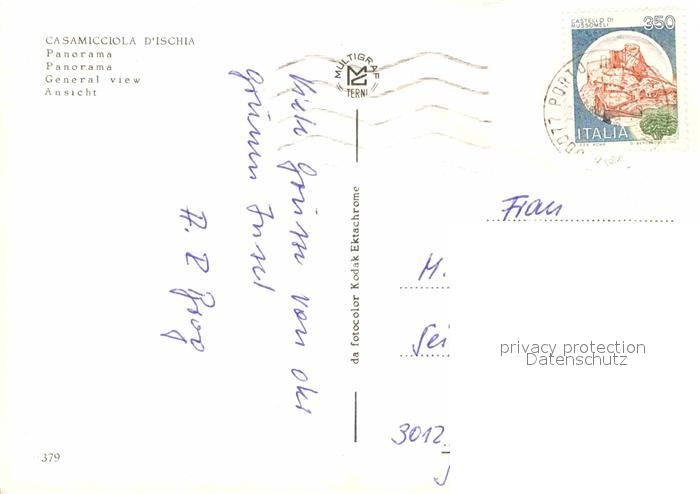 CASAMICCIOLA D'ISCHIA
Panorama
Panorama
General view
Ansicht
MULTIGRAF
TERNI
CASTELLO DI
MUSSOMELI
350
ITALIA
80077 PORTO
Viele Grüsse von der
grünen Insel
da fotocolor Kodak Ektachrome
Frau
M.
Sei
3012
privacy protection
Datenschutz
379